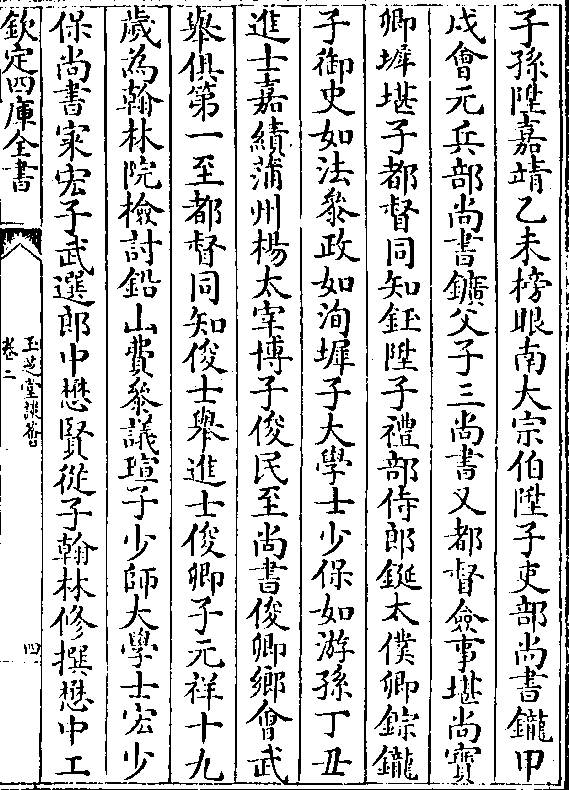 子孫陞嘉靖乙未榜眼南大宗伯陞子吏部尚書鑨甲
戍會元兵部尚書鑛父子三尚書又都督僉事堪尚寳
卿墀堪子都督同知鈺陞子禮部侍郎鋋太僕卿錝鑨
子御史如法叅政如洵墀子大學士少保如游孫丁丑
進士嘉績蒲州楊太宰博子俊民至尚書俊卿鄉㑹武
舉俱第一至都督同知俊士舉進士俊卿子元祥十九
歲為翰林院檢討鉛山費叅議瑄子少師大學士宏少
保尚書寀宏子武選郎中懋賢從子翰林修撰懋中工
欽定四庫全書
玉芝堂談薈
卷二
四